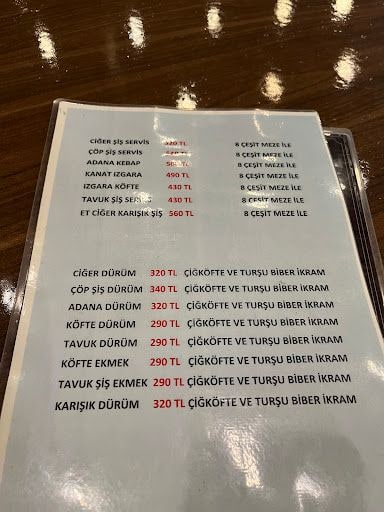 CİĞER ŞİŞ SERVİS 520 TL 8 ÇEŞİT MEZE İLE
ÇÖP ŞİŞ SERVİS TL 8 ÇEŞİT MEZE İLE
ADANA KEBAP TL 8 ÇEŞİT MEZE İLE
KANAT IZGARA 490 TL 8 ÇEŞİT MEZE İLE
IZGARA KÖFTE 430 TL 8 ÇEŞİT MEZE İLE
TAVUK ŞİŞ SERVİS 430 TL 8 ÇEŞİT MEZE İLE
ET CİĞER KARIŞIK ŞİŞ 560 TL 8 ÇEŞİT MEZE İLE
CİĞER DÜRÜM 320 TL ÇİĞKÖFTE VE TURŞU BİBER İKRAM
ÇÖP ŞİŞ DÜRÜM 340 TL ÇİĞKÖFTE VE TURŞU BİBER İKRAM
ADANA DÜRÜM 320 TL ÇİĞKÖFTE VE TURŞU BİBER İKRAM
KÖFTE DÜRÜM 290 TL ÇİĞKÖFTE VE TURŞU BİBER İKRAM
TAVUK DÜRÜM 290 TL ÇİĞKÖFTE VE TURŞU BİBER İKRAM
KÖFTE EKMEK 290 TL ÇİĞKÖFTE VE TURŞU BİBER İKRAM
TAVUK ŞİŞ EKMEK 290 TL ÇİĞKÖFTE VE TURŞU BİBER İKRAM
KARIŞIK DÜRÜM 320 TL ÇİĞKÖFTE VE TURŞU BİBER İKRAM